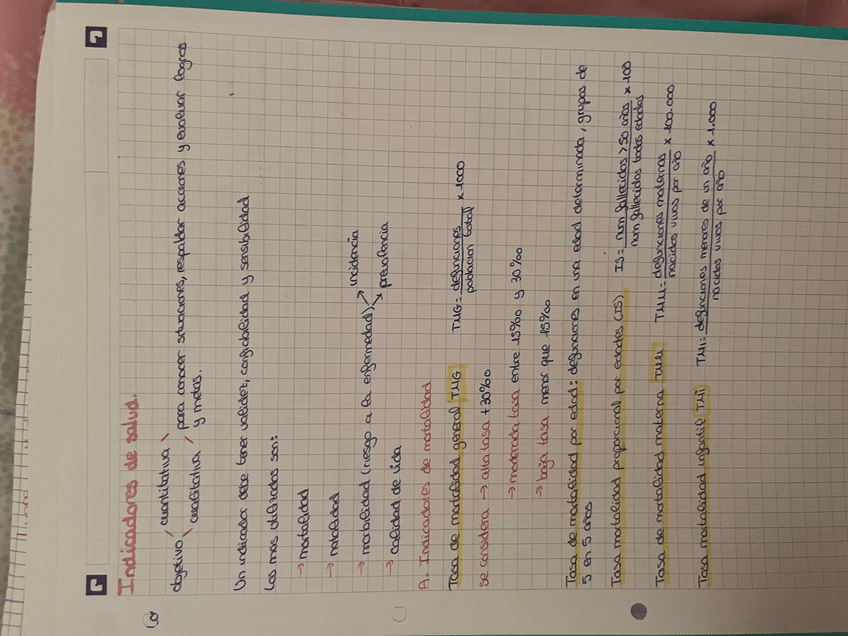 Indicadores de salud.
objetivo
cuantitativa
cualitativa
para conocer situaciones, respaldar acciones y evaluar logros
y metas.
Un indicador debe tener validez, confiabilidad y sensibilidad
Los mas utilizados son:
→ mortalidad
→ natalidad
→ morbilidad (riesgo a la enfermedad)
incidencia
prevalencia
→ calidad de vida
A. Indicadores de mortalidad
Tasa de mortalidad general TMG TMG = defunciones / poblacion total x 1000
se considera → alta tasa +30‰
→ moderada tasa entre 15‰ y 30‰
→ baja tasa menor que 15‰
Tasa de mortalidad por edad: defunciones en una edad determinada, grupos de
5 en 5 años
Tasa mortalidad proporcional por edades (IS) IS = num fallecidos > 50 años / num fallecidos todas edades x 100
Tasa de mortalidad materna TMM TMM = defunciones maternas / nacidos vivos por año x 100.000
Tasa mortalidad infantil TMI TMI = defunciones menores de un año / nacidos vivos por año x 1.000